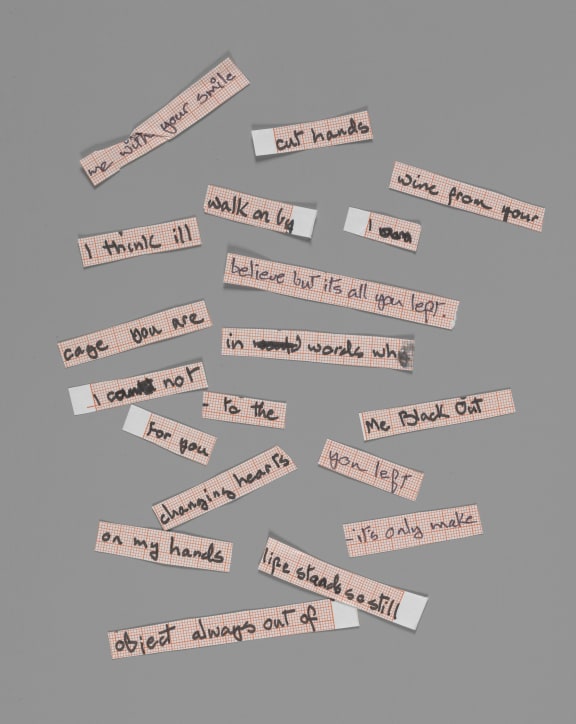 me with your smile
cut hands
wine from your
walk on by
I
I think ill
believe but its all you left.
cage you are
in words
I not
to the
Me Black Out
For you
you left
changing hearts
-it's only make
on my hands
life stands so still
object always out of